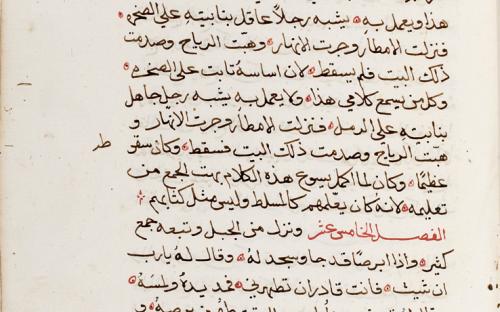 هذا ويعمل به يشبه رجلاً عاقل بنا بيته على الصخره
فنزلت الامطار وجرت الانهار وهبت الرياح وصدمت
ذلك البيت فلم يسقط لان اساسه ثابت على الصخره
وكل من يسمع كلامي هذا ولا يعمل به يشبه رجل جاهل
بنا بيته على الرمل فنزلت الامطار وجرت الانهار و
هبت الرياح وصدمت ذلك البيت فسقط وكان سقو
طر
عظيمًا وكان لما اكمل يسوع هذه الكلام بهت الجمع من
تعليمه لانه كان يعلمهم كالمسلط وليس مثل كتابهم
الفصل الخامس عشر ونزل من الجبل وتبعه جمع
كثير واذا ابرصًا قد جا وسجد له وقال له يارب
ان شيت فانت قادر ان تطهرني فمد يده ولمسه